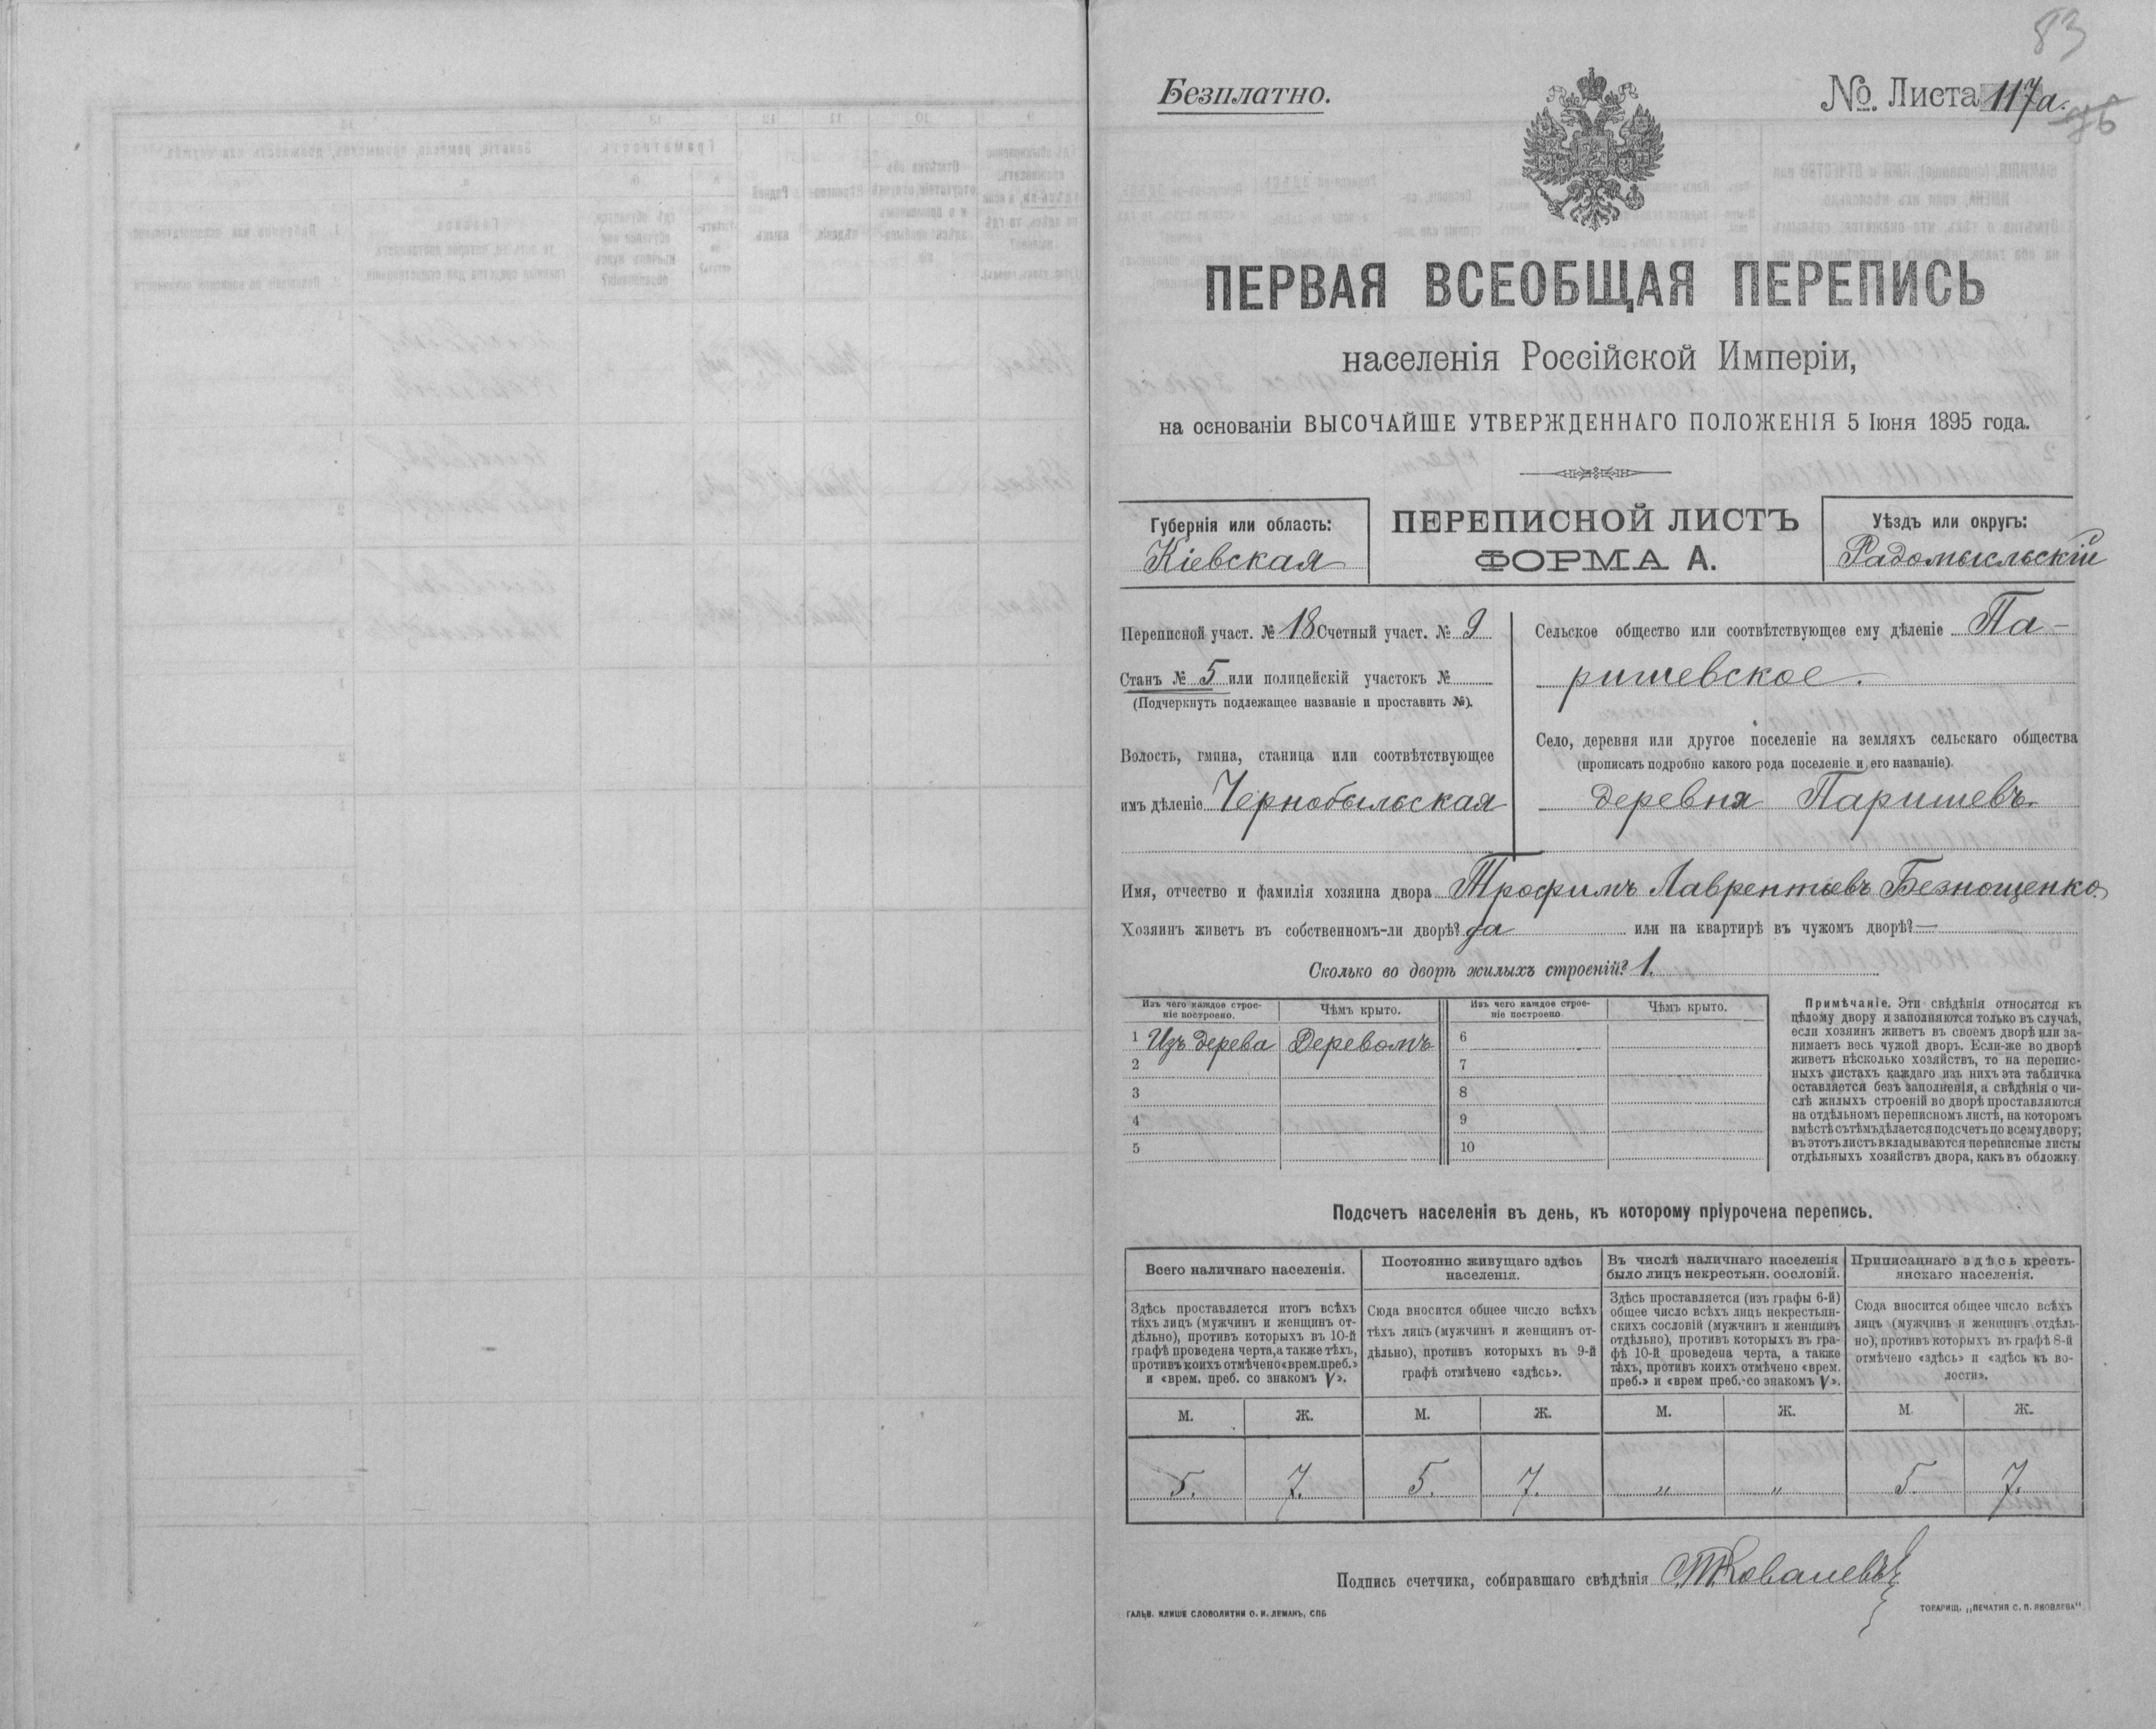 83
Безплатно.
№. Листа 117а.
76
ПЕРВАЯ ВСЕОБЩАЯ ПЕРЕПИСЬ
населенія Россійской Имперіи,
на основаніи ВЫСОЧАЙШЕ УТВЕРЖДЕННАГО ПОЛОЖЕНІЯ 5 Іюня 1895 года.
Губернія или область:
Кіевская
ПЕРЕПИСНОЙ ЛИСТЪ
ФОРМА А.
Уѣздъ или округъ:
Радомысльскій
Переписной участ. № 18 Счетный участ. № 9
Станъ № 5 или полицейскій участокъ №
(Подчеркнуть подлежащее названіе и проставить №).
Волость, гмина, станица или соотвѣтствующее
имъ дѣленіе Чернобыльская
Сельское общество или соотвѣтствующее ему дѣленіе Па-
ришевское.
Село, деревня или другое поселеніе на земляхъ сельскаго общества
(прописать подробно какого рода поселеніе и его названіе).
деревня Паришевъ.
Имя, отчество и фамилія хозяина двора Трофимъ Лаврентьевъ Безнощенко.
Хозяинъ живетъ въ собственномъ-ли дворѣ? да или на квартирѣ въ чужомъ дворѣ? —
Сколько во дворѣ жилыхъ строеній? 1.
Изъ чего каждое строе-
ніе построено.
Чѣмъ крыто.
Изъ чего каждое строе-
ніе построено
Чѣмъ крыто.
1 Изъ дерева Деревомъ 6
2 7
3 8
4 9
5 10
Примѣчаніе. Эти свѣдѣнія относятся къ
цѣлому двору и заполняются только въ случаѣ,
если хозяинъ живетъ въ своемъ дворѣ или за-
нимаетъ весь чужой дворъ. Если-же во дворѣ
живетъ нѣсколько хозяйствъ, то на перепис-
ныхъ листахъ каждаго изъ нихъ эта табличка
оставляется безъ заполненія, а свѣдѣнія о чи-
слѣ жилыхъ строеній во дворѣ проставляются
на отдѣльномъ переписномъ листѣ, на которомъ
вмѣстѣ съ тѣмъ дѣлается подсчетъ по всему двору;
въ этотъ листъ вкладываются переписные листы
отдѣльныхъ хозяйствъ двора, какъ въ обложку.
Подсчетъ населенія въ день, къ которому пріурочена перепись.
Всего наличнаго населенія.
Постоянно живущаго здѣсь
населенія.
Въ числѣ наличнаго населенія
было лицъ некрестьян. сословій.
Приписаннаго здѣсь кресть-
янскаго населенія.
Здѣсь проставляется итогъ всѣхъ
тѣхъ лицъ (мужчинъ и женщинъ от-
дѣльно), противъ которыхъ въ 10-й
графѣ проведена черта, а также тѣхъ,
противъ коихъ отмѣчено «врем. преб.»
и «врем. преб. со знакомъ V».
Сюда вносится общее число всѣхъ
тѣхъ лицъ (мужчинъ и женщинъ от-
дѣльно), противъ которыхъ въ 9-й
графѣ отмѣчено «здѣсь».
Здѣсь проставляется (изъ графы 6-й)
общее число всѣхъ лицъ некрестьян-
скихъ сословій (мужчинъ и женщинъ
отдѣльно), противъ которыхъ въ гра-
фѣ 10-й проведена черта, а также
тѣхъ, противъ коихъ отмѣчено «врем.
преб.» и «врем преб. со знакомъ V».
Сюда вносится общее число всѣхъ
лицъ (мужчинъ и женщинъ отдѣль-
но), противъ которыхъ въ графѣ 8-й
отмѣчено «здѣсь» и «здѣсь къ во-
лости».
М. Ж. М. Ж. М. Ж. М. Ж.
5. 7. 5. 7. „ „ 5. 7.
Подпись счетчика, собиравшаго свѣдѣнія
ГАЛЬВ. КЛИШЕ СЛОВОЛИТНИ О. И. ЛЕМАНЪ, СПБ
ТОВАРИЩ. „ПЕЧАТНЯ С. П. ЯКОВЛЕВА".